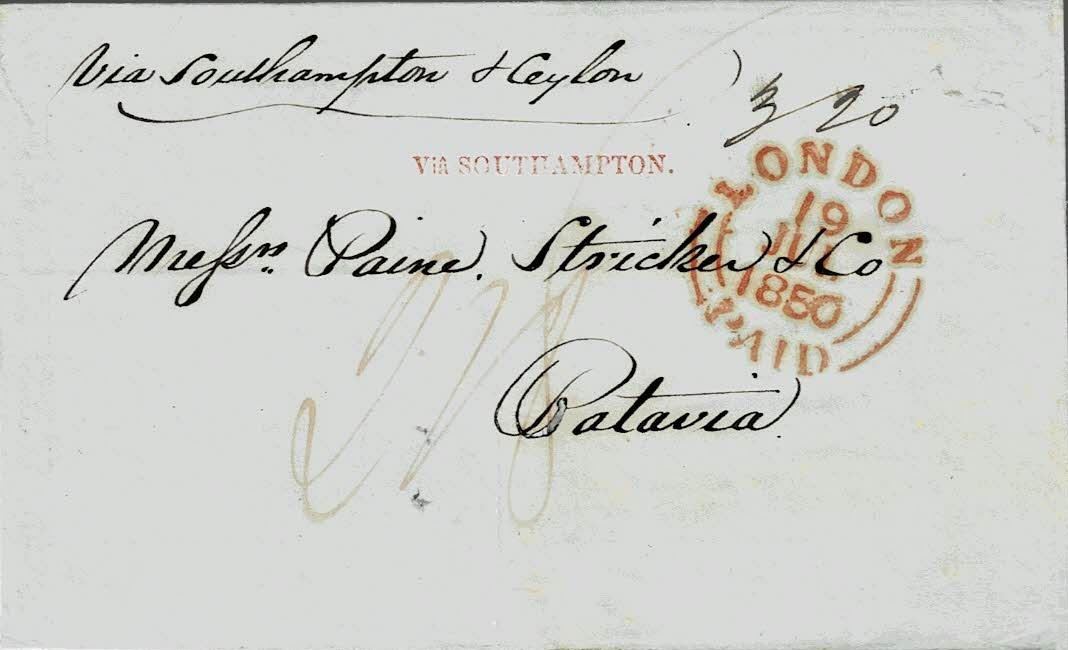 Via Southampton & Ceylon
3/20
Viâ SOUTHAMPTON.
LONDON
19
1850
PAID
Messrs. Paine, Stricker & Co
Batavia